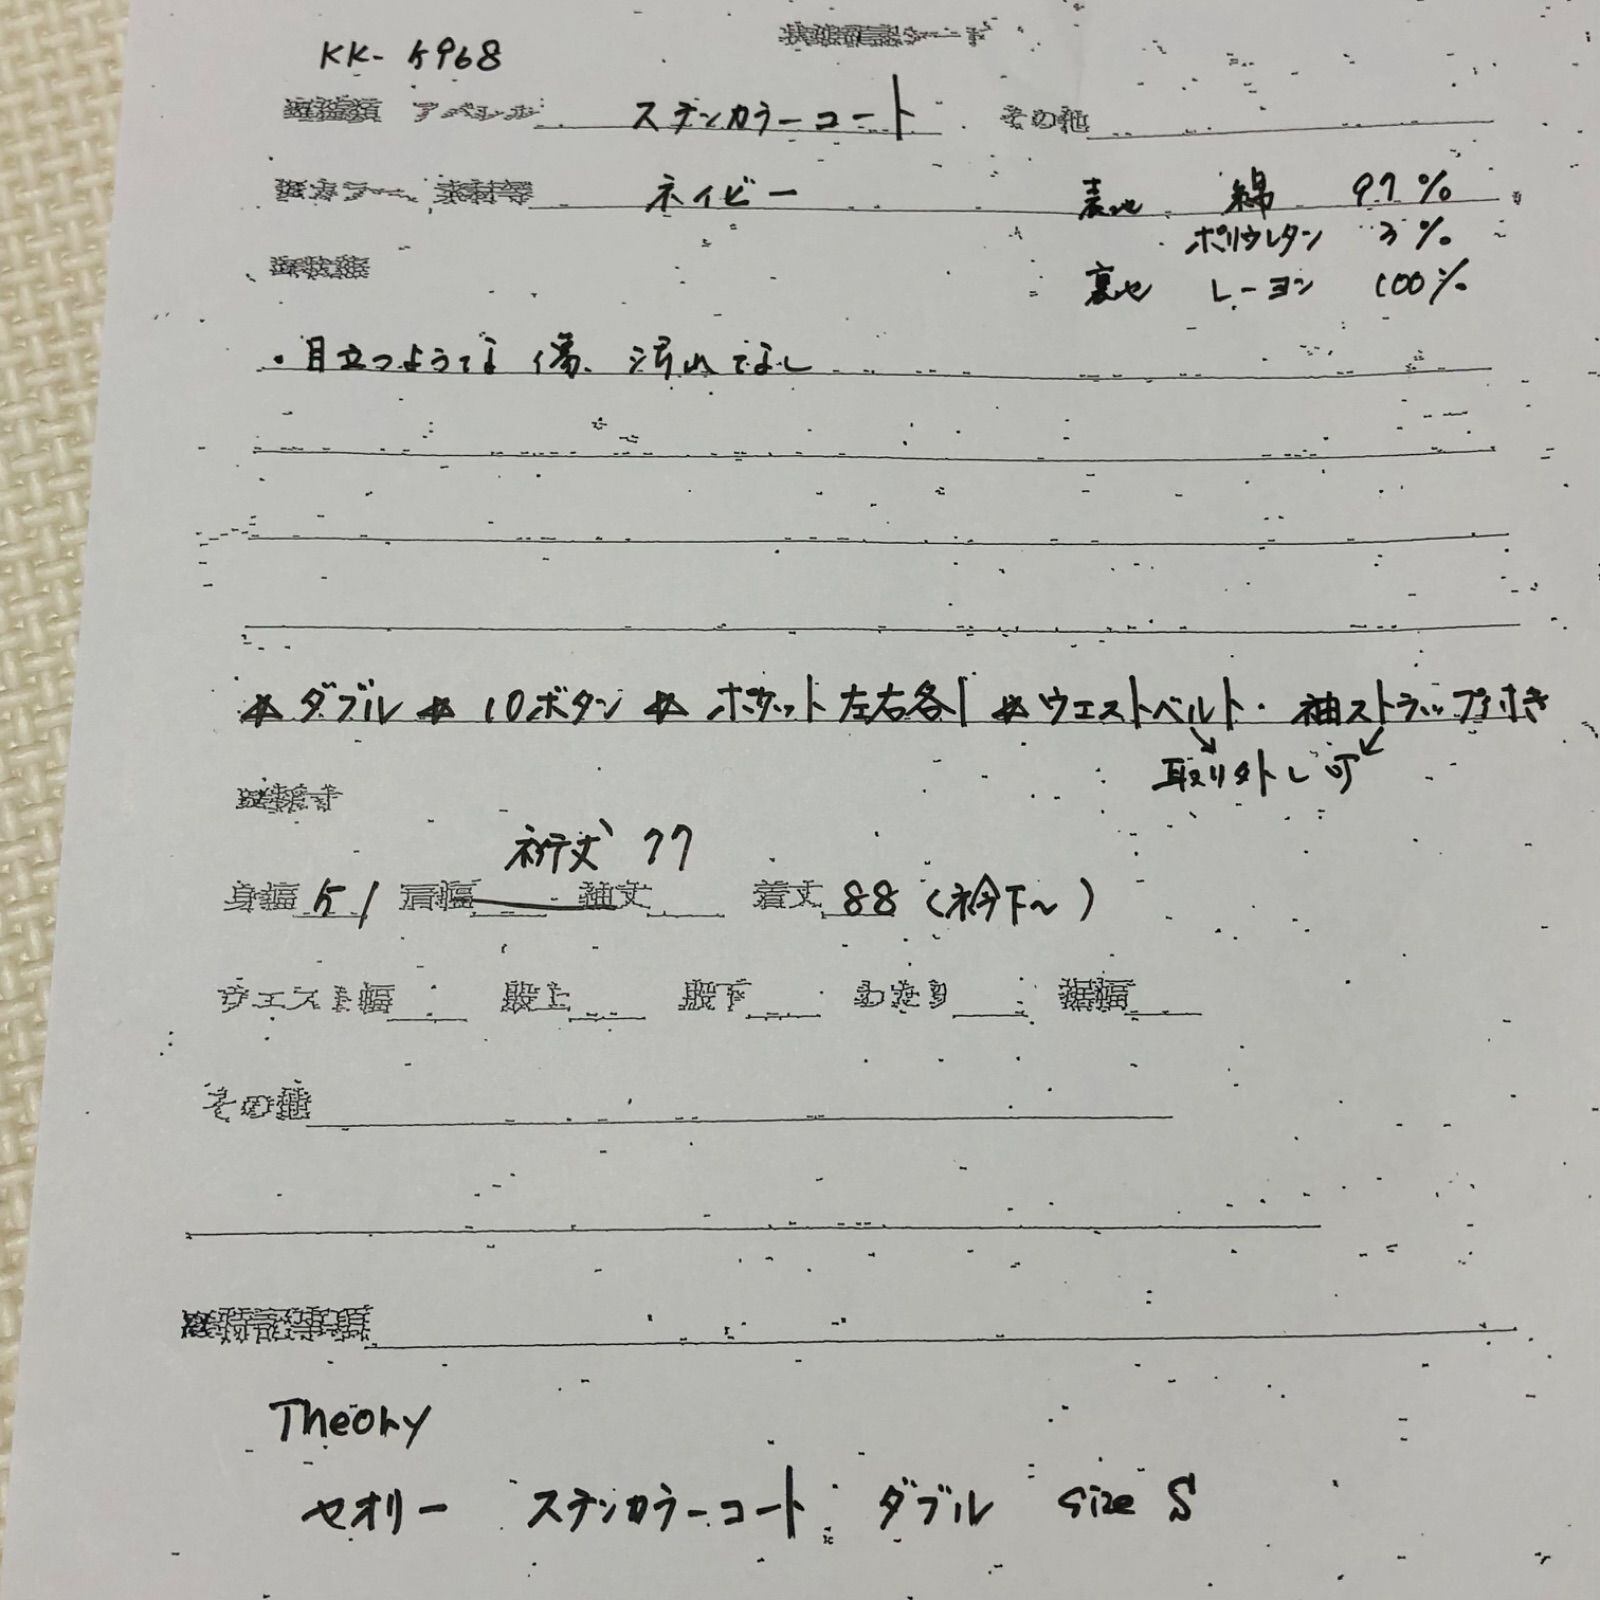 KK-5968
アパレル ステンカラーコート その他
カラー、素材等 ネイビー 表地 綿 97%
ポリウレタン 3%
裏地 レーヨン 100%
・目立つような傷、汚れなし
☆ダブル ☆10ボタン ☆ポケット左右各1 ☆ウエストベルト・袖ストラップ付き
取り外し可
採寸
裄丈 77
身幅 51 肩幅 袖丈 着丈 88 (衿下~)
ウエスト幅 股上 股下 わたり 裾幅
その他
特記事項
Theory
セオリー ステンカラーコート ダブル size S